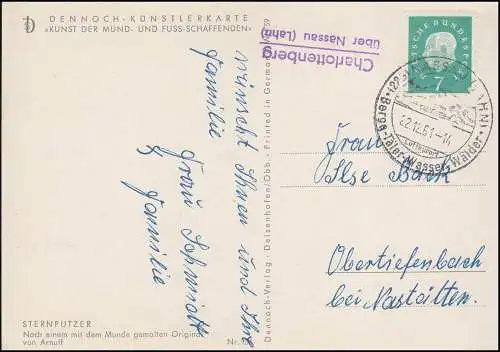 DENNOCH-KÜNSTLERKARTE
»KUNST DER MUND- UND FUSS-SCHAFFENDEN«
wünscht Ihnen und Ihre
Familie
Frau Schmidt
& Familie
STERNPUTZER
Nach einem mit dem Munde gemalten Original
von Arnulf
Nr.
Dennoch-Verlag · Deisenhofen/Obb. · Printed in Germany
59
Charlottenberg
über Nassau (Lahn)
DEUTSCHE BUNDESPOST
7
(22
LAHN)
22.12.61-14
Luftkurort
Berge-Täler-Wasser-Wälder
Frau
Ilse Back
Obertiefenbach
bei Nastätten.